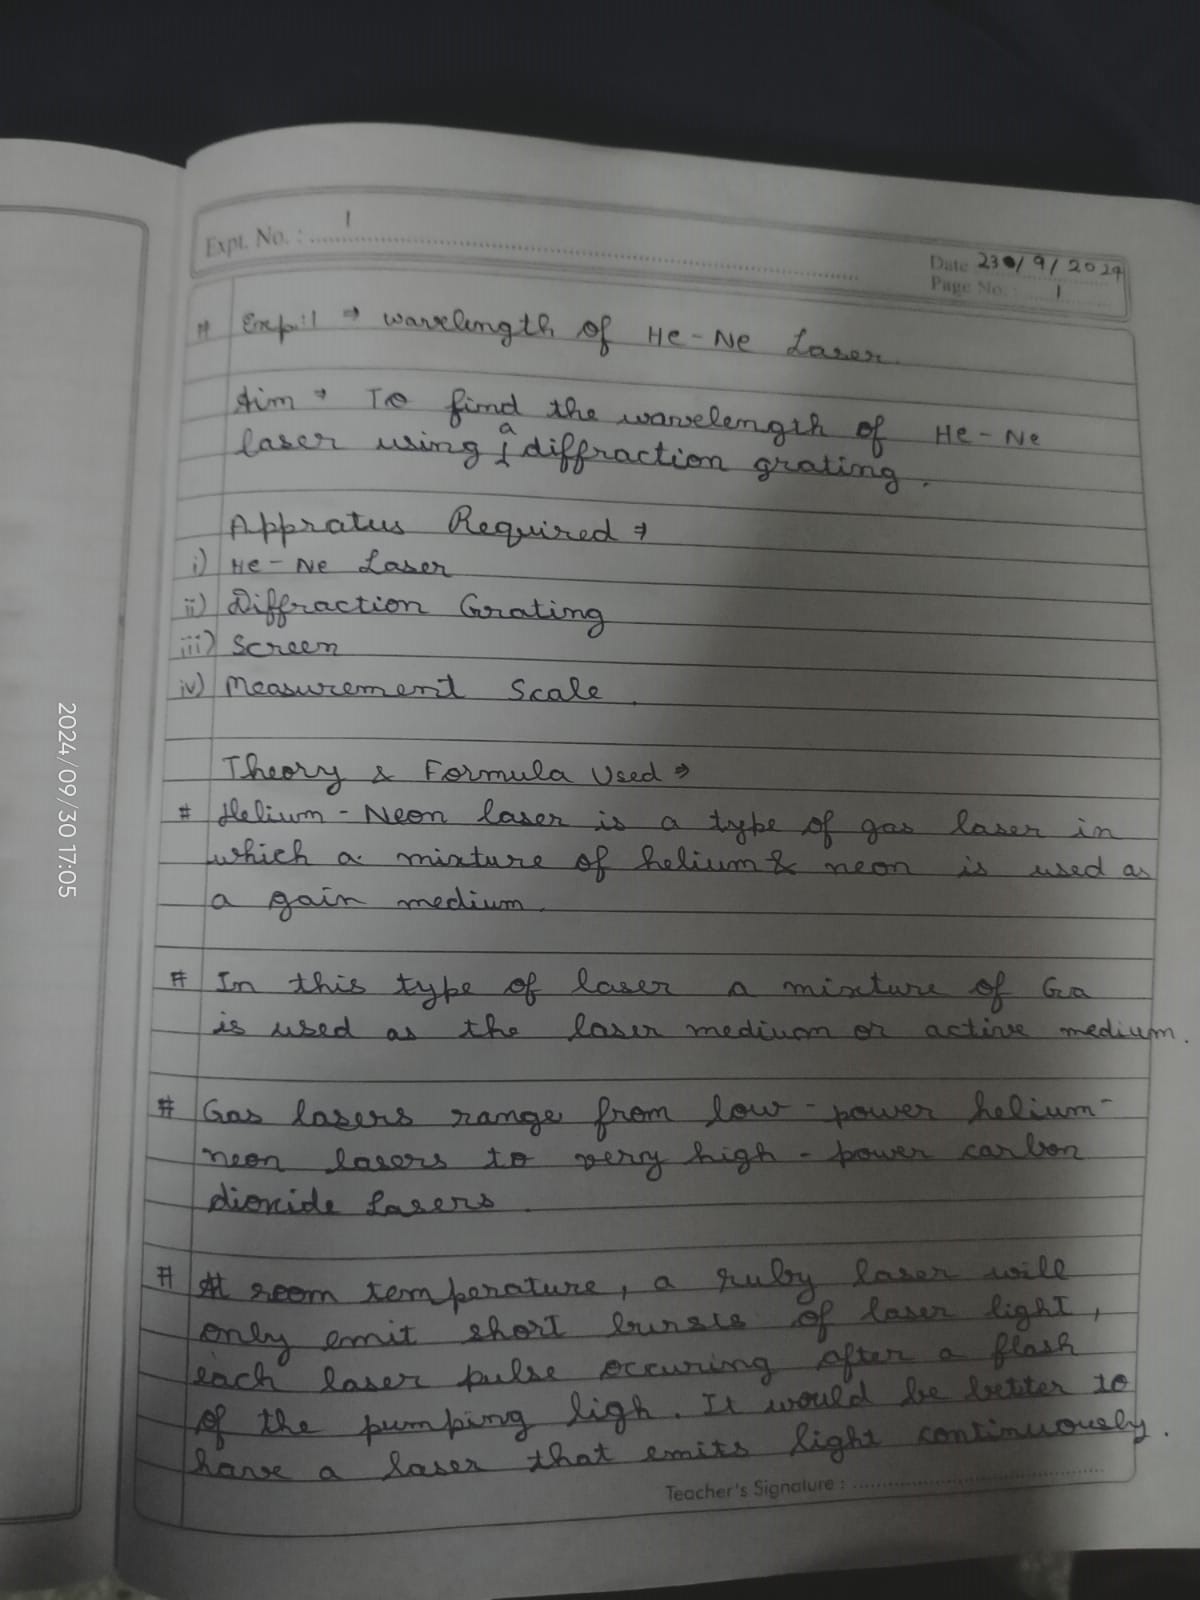 Expt. No. : 1
Date 23/9/2024
Page No. : 1
# Exp:1 → wavelength of He-Ne Laser.
Aim → To find the wavelength of He-Ne
laser using a diffraction grating.
Appratus Required →
i) He-Ne Laser
ii) Diffraction Grating
iii) Screen
iv) Measurement Scale.
Theory & Formula Used →
# Helium-Neon laser is a type of gas laser in
which a mixture of helium & neon is used as
a gain medium.
# In this type of laser a mixture of Ga
is used as the laser medium or active medium.
# Gas lasers range from low-power helium-
neon lasers to very high-power carbon
dioxide Lasers.
# At room temperature, a ruby laser will
only emit short bursts of laser light,
each laser pulse occuring after a flash
of the pumping ligh. It would be better to
have a laser that emits light continuously.
Teacher's Signature :
2024/09/30 17:05